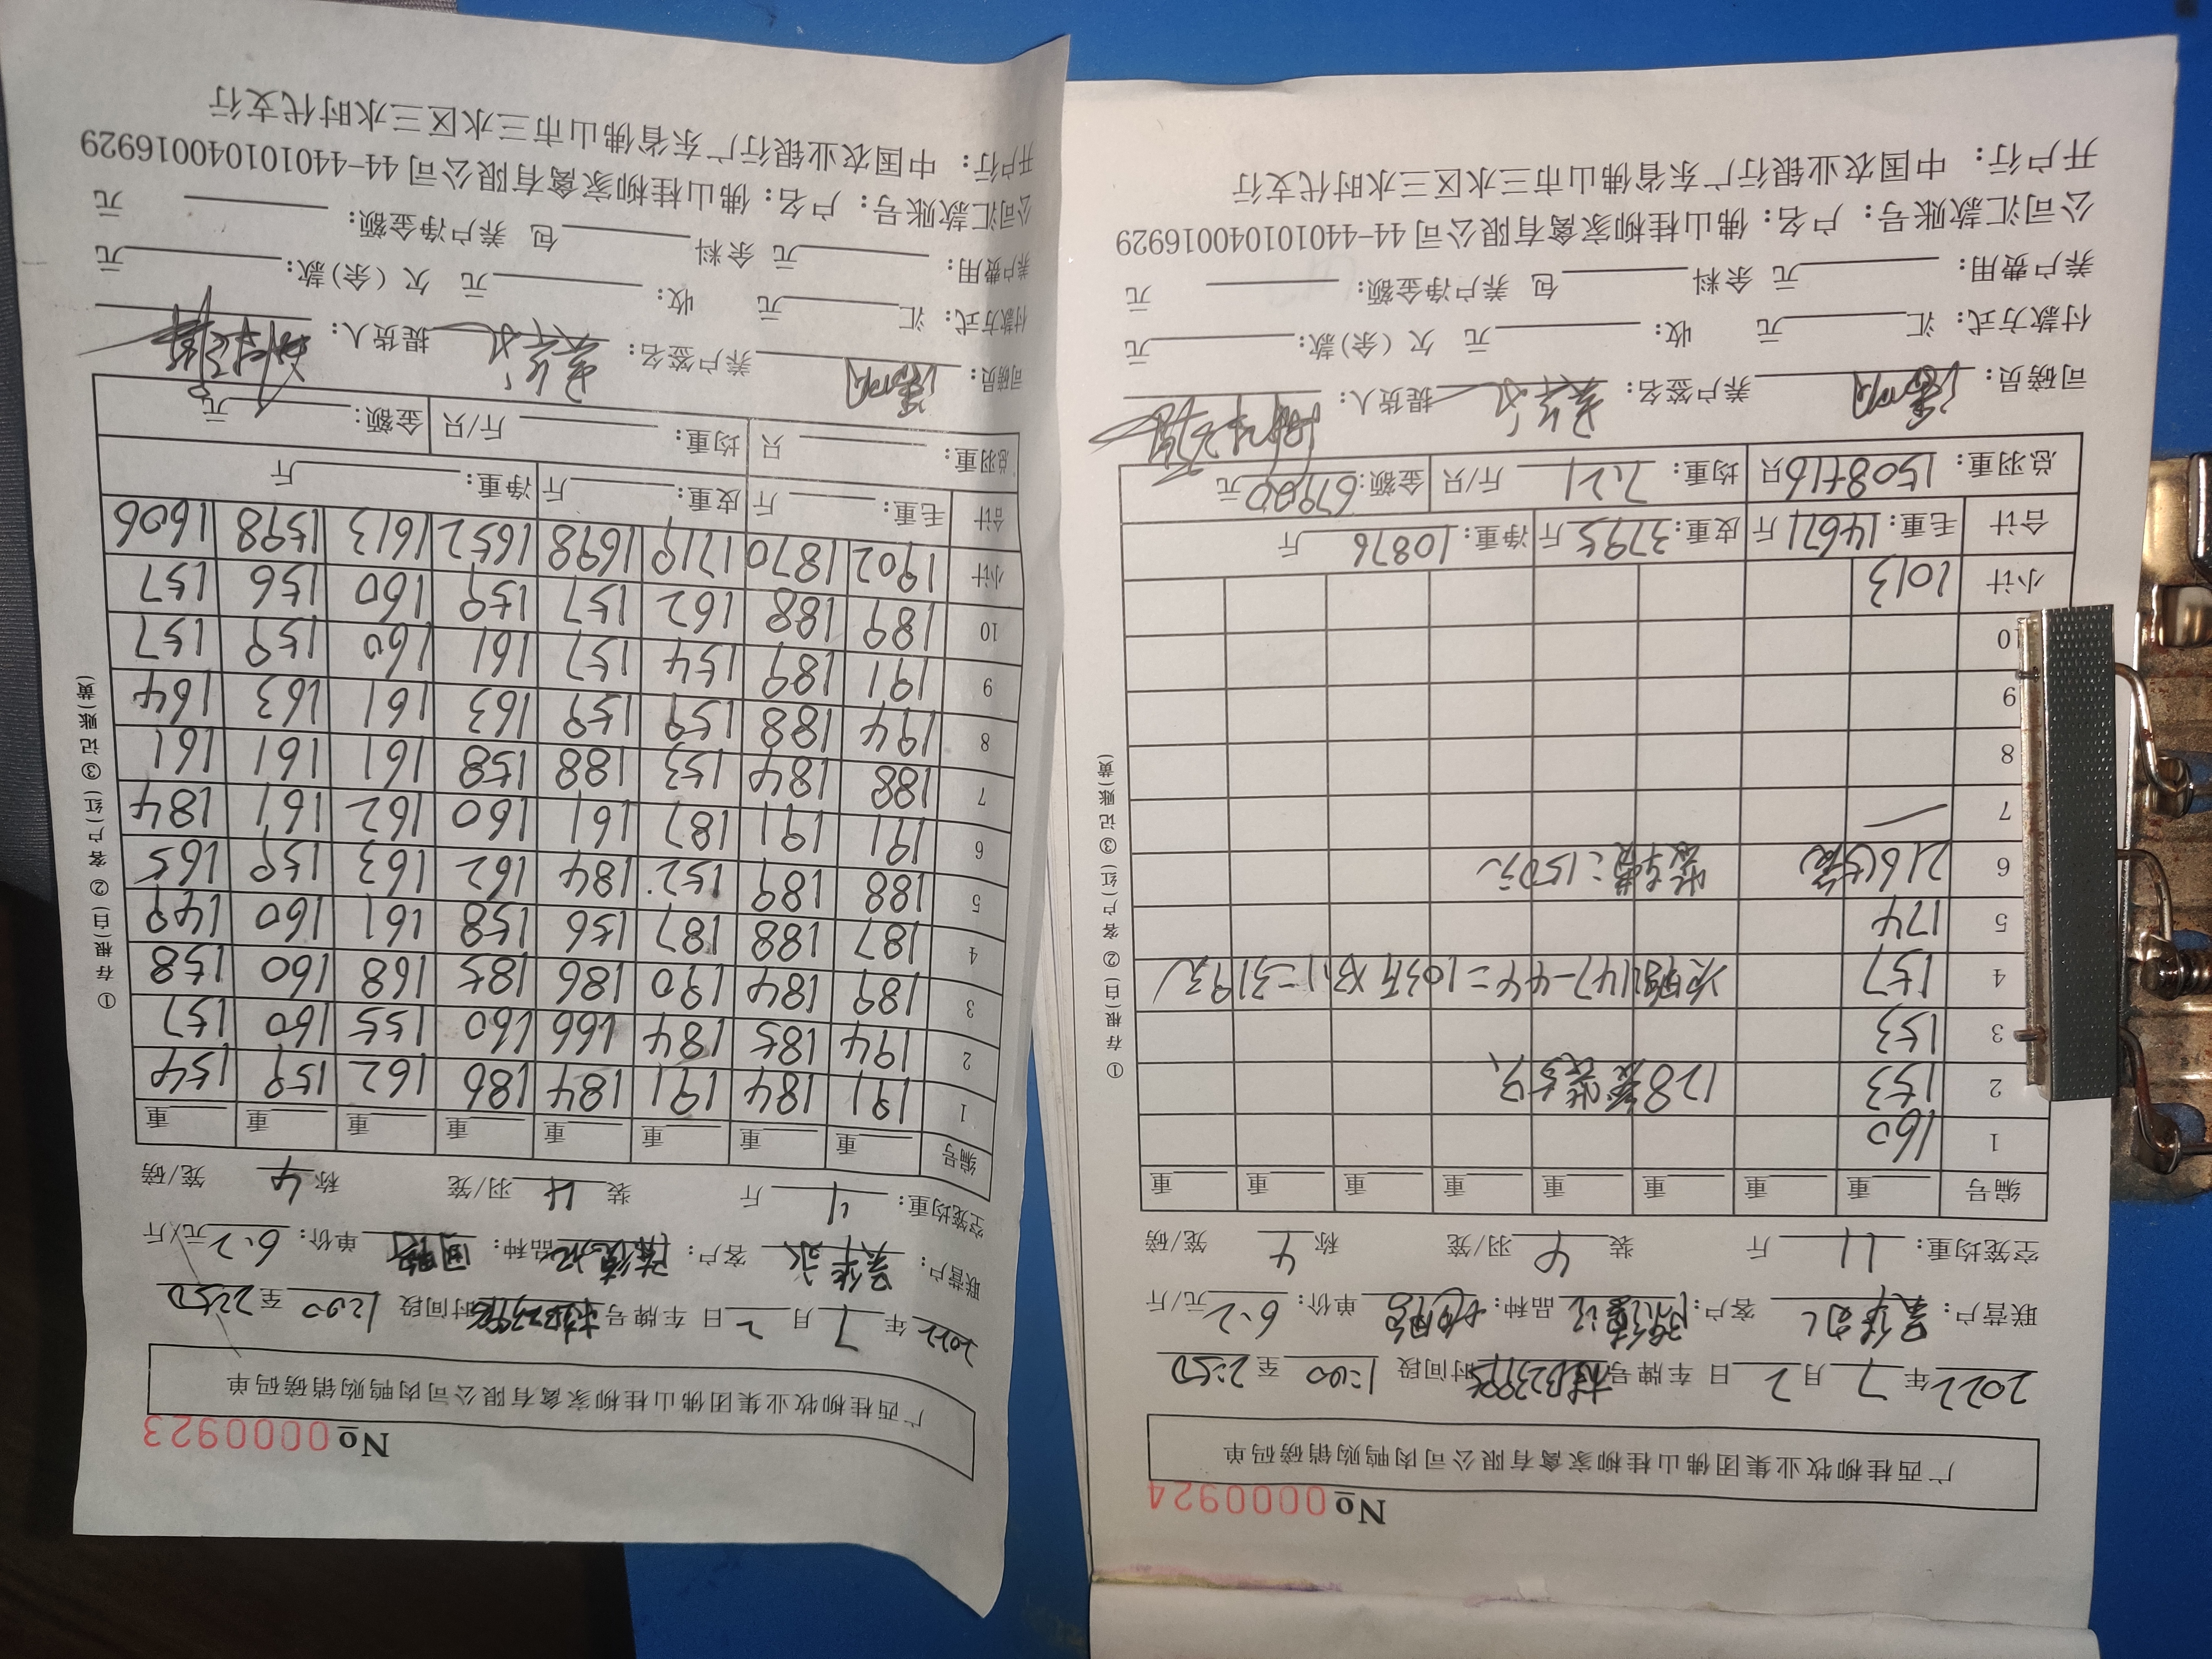 No 0000924
广西桂柳牧业集团佛山桂柳家禽有限公司肉鸭购销磅码单
2022年 7 月 2 日 车牌号 时间段 1:00 至 2:50
联营户: 客户: 品种: 单价: 6.2 元/斤
空笼均重: 11 斤 装 4 羽/笼 称 4 笼/磅
编号 重 重 重 重 重 重 重 重
1 160
2 153 128 装5只
3 153
4 157 147-44=103斤×3.1=319元
5 174
6 216(5笼) =150元
7
8
9
10
小计 1013
合计 毛重: 14671 斤 皮重: 3795 斤 净重: 10876 斤
总羽重: 1508+16 只 均重: 7.21 斤/只 金额: 67900 元
司磅员: 养户签名: 提货人:
付款方式: 汇 元 收: 元 欠(余)款: 元
养户费用: 元 余料 包 养户净金额: 元
公司汇款账号: 户名: 佛山桂柳家禽有限公司 44-440101040016929
开户行: 中国农业银行广东省佛山市三水区三水时代支行
①存根(白) ②客户(红) ③记账(黄)
No 0000923
广西桂柳牧业集团佛山桂柳家禽有限公司肉鸭购销磅码单
2022年 7 月 2 日 车牌号 时间段 1:00 至 2:50
联营户: 客户: 品种: 单价: 6.2 元/斤
空笼均重: 11 斤 装 4 羽/笼 称 4 笼/磅
编号 重 重 重 重 重 重 重 重
1 191 184 191 184 186 162 159 154
2 194 185 184 166 160 155 160 157
3 189 184 190 186 185 168 160 158
4 187 188 187 156 158 161 160 149
5 188 189 152 184 162 163 159 165
6 191 191 187 161 160 162 161 184
7 188 184 153 188 158 161 161 161
8 194 188 159 159 163 161 163 164
9 191 189 154 157 161 160 159 157
10 189 188 162 157 159 160 156 157
小计 1902 1870 1719 1698 1652 1613 1598 1606
合计 毛重: 斤 皮重: 斤 净重: 斤
总羽重: 只 均重: 斤/只 金额: 元
司磅员: 养户签名: 提货人:
付款方式: 汇 元 收: 元 欠(余)款: 元
养户费用: 元 余料 包 养户净金额: 元
公司汇款账号: 户名: 佛山桂柳家禽有限公司 44-440101040016929
开户行: 中国农业银行广东省佛山市三水区三水时代支行
①存根(白) ②客户(红) ③记账(黄)